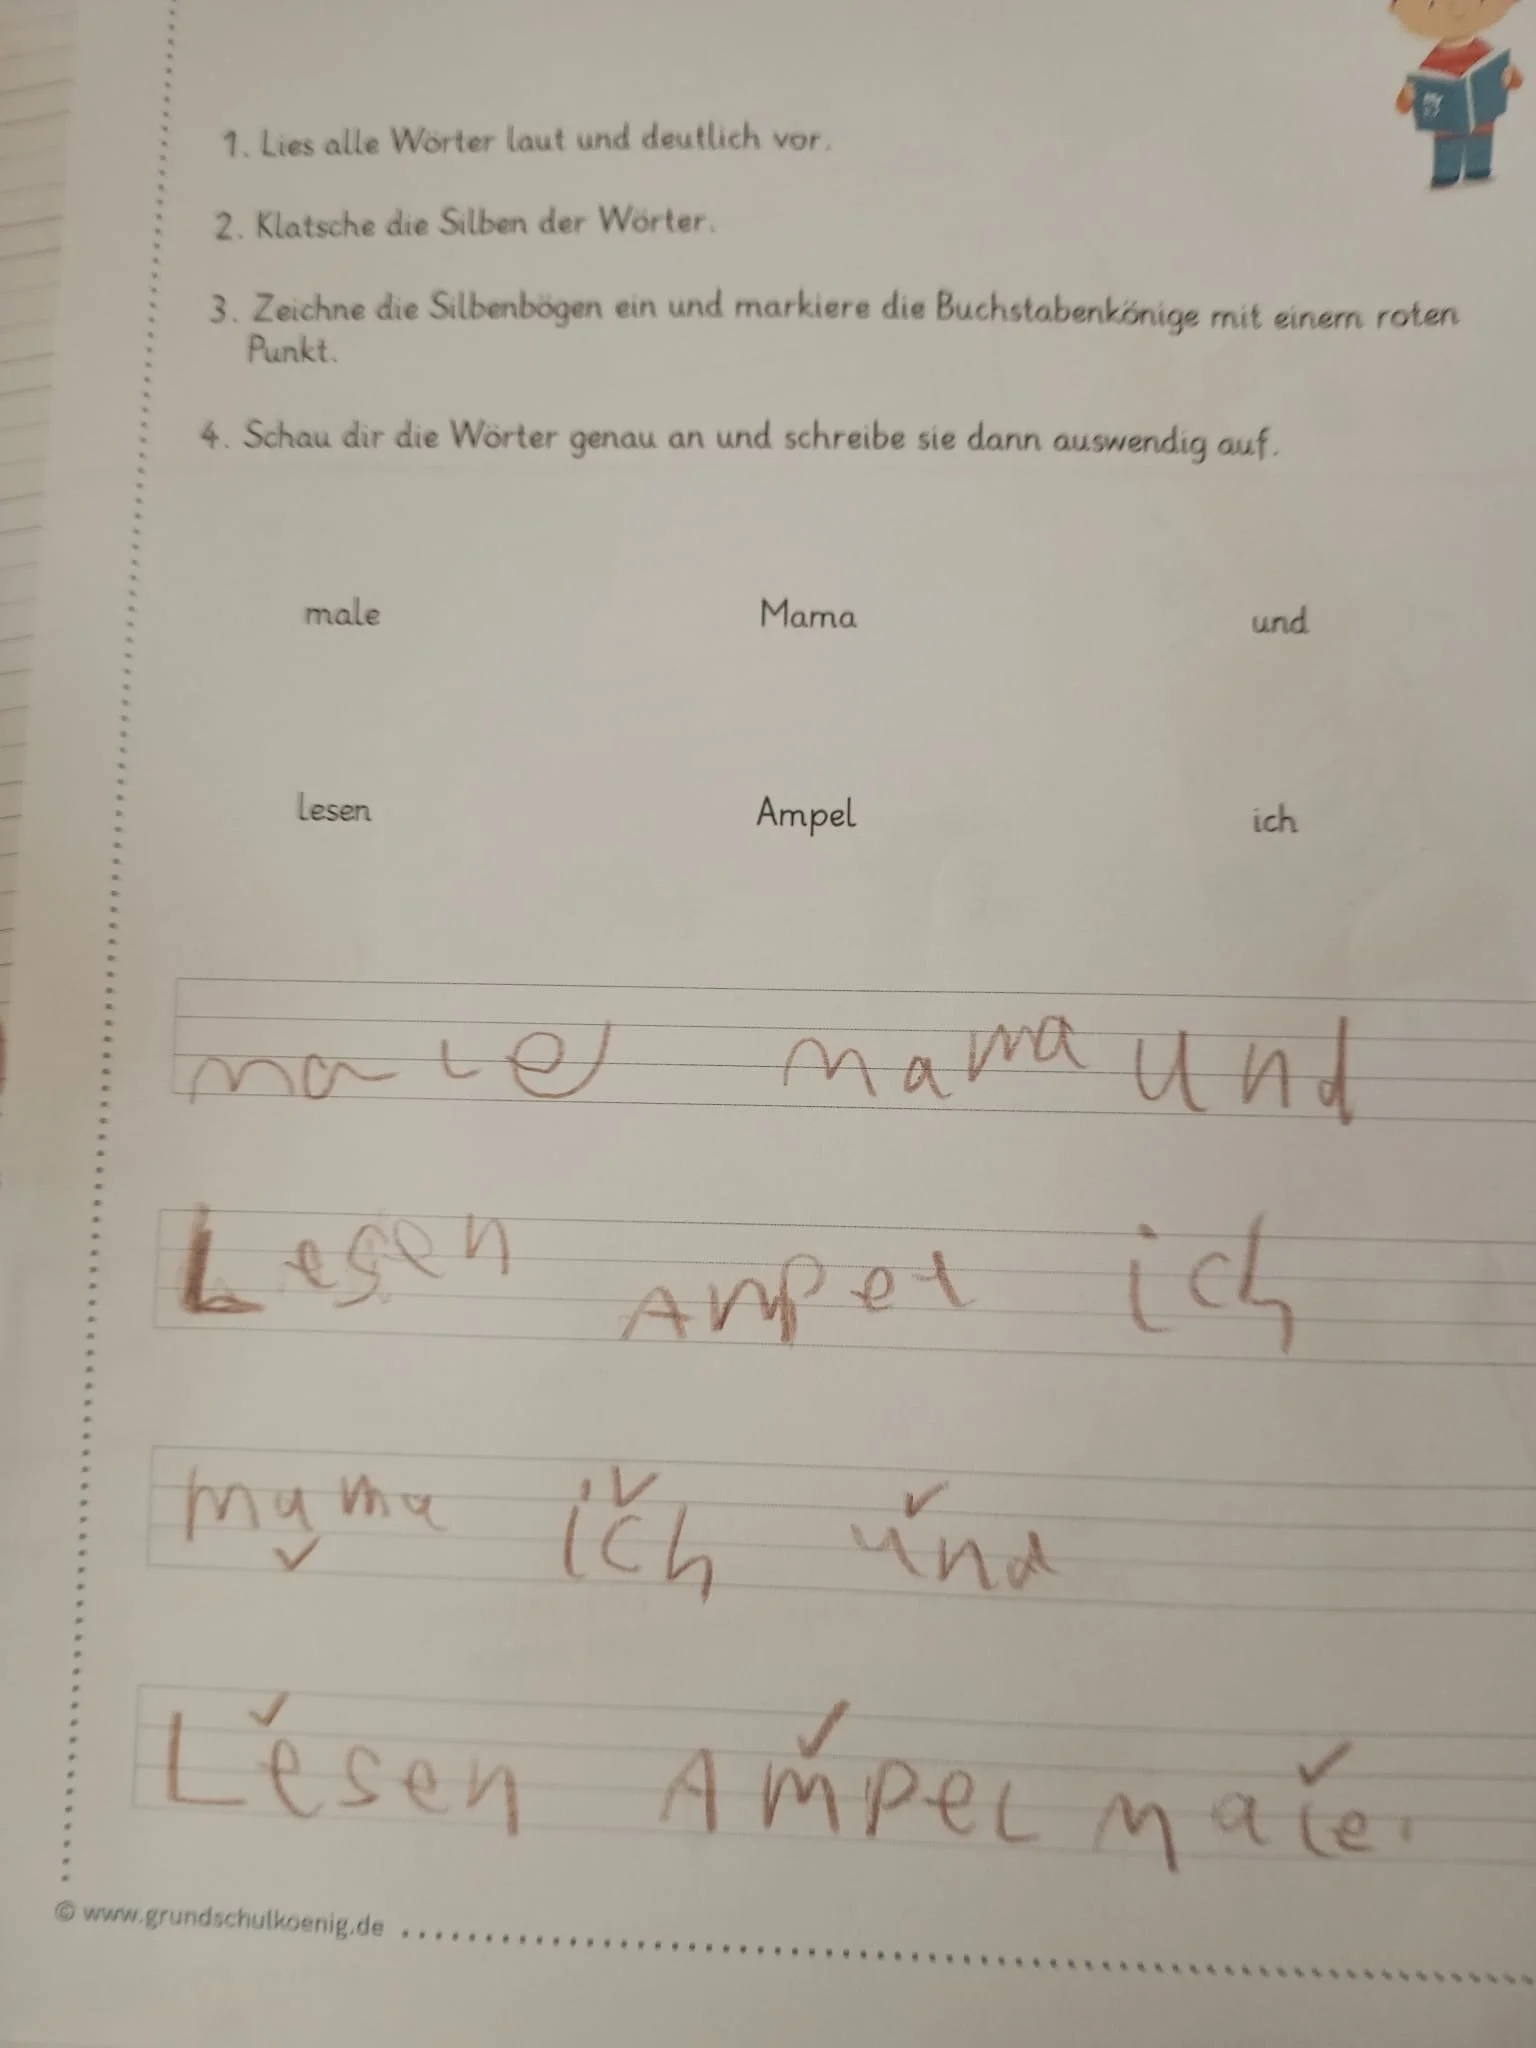 1. Lies alle Wörter laut und deutlich vor.
2. Klatsche die Silben der Wörter.
3. Zeichne die Silbenbögen ein und markiere die Buchstabenkönige mit einem roten
Punkt.
4. Schau dir die Wörter genau an und schreibe sie dann auswendig auf.
male Mama und
lesen Ampel ich
male mama und
Lesen Ampel ich
mama ich und
Lesen Ampel male
© www.grundschulkoenig.de